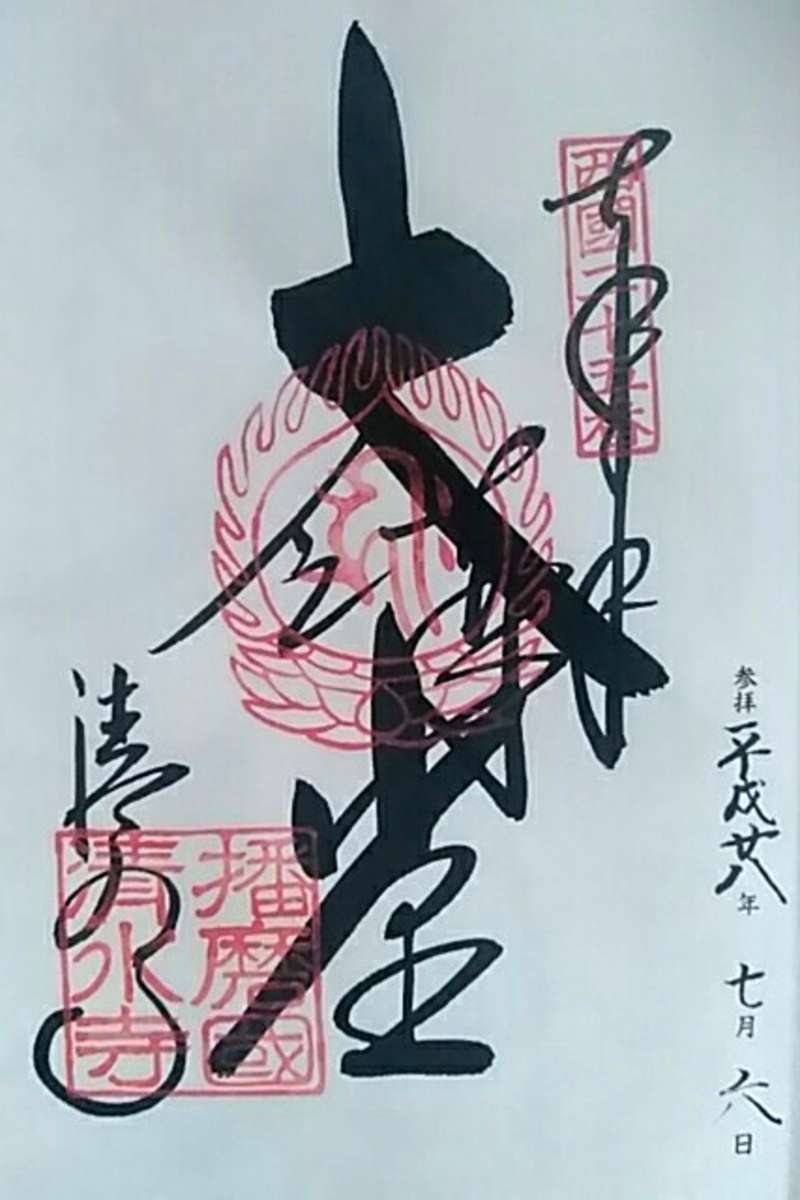 参拝 平成廿八年 七月 六日
奉拝
西國二十五番
大講堂
清水寺
播磨國
清水寺